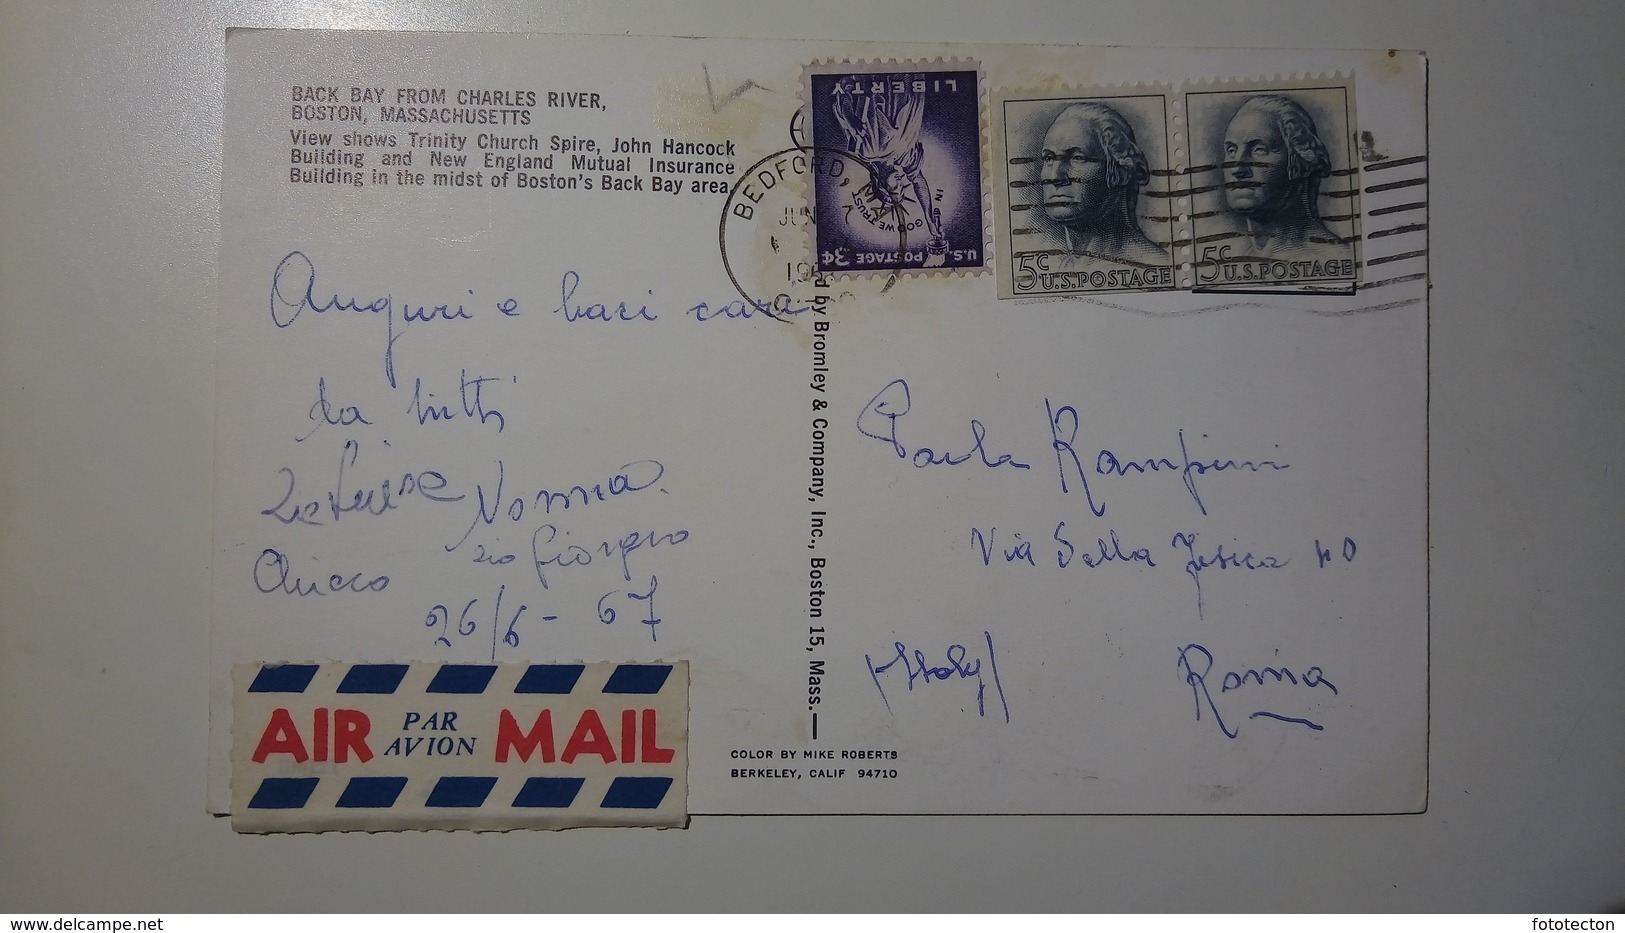 BACK BAY FROM CHARLES RIVER,
BOSTON, MASSACHUSETTS
View shows Trinity Church Spire, John Hancock
Building and New England Mutual Insurance
Building in the midst of Boston's Back Bay area.
Auguri e baci cara
da tutti
Zie Luise Norma.
zio Giorgio
Chicco
26/6 - 67
AIR PAR AVION MAIL
BEDFORD, MA
JUN
LIBERTY
IN GOD WE TRUST
U.S. POSTAGE 3¢
5c U.S. POSTAGE
5c U.S. POSTAGE
d by Bromley & Company, Inc., Boston 15, Mass.
COLOR BY MIKE ROBERTS
BERKELEY, CALIF 94710
Paola Rampini
Via della 40
/Italy/ Roma
delcampe.net
fototecton